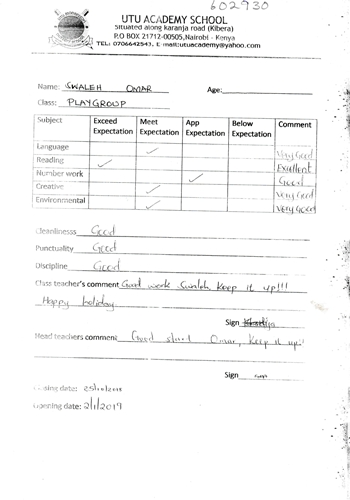 602930
UTU ACADEMY SCHOOL
Situated along karanja road (Kibera)
P.O BOX 21712-00505, Nairobi - Kenya
TEL: 0706642543, E-mail:utuacademy@yahoo.com
Name: SWALEH OMAR Age:
Class: PLAYGROUP
Subject Exceed Expectation Meet Expectation App Expectation Below Expectation Comment
Language ✓ Very Good
Reading ✓ Excellent
Number work ✓ Good
Creative ✓ Very Good
Environmental ✓ Very Good
Cleanliness Good
Punctuality Good
Discipline Good
Class teacher's comment Good work Swaleh, Keep it up!!!
Happy holiday.
Sign
Head teachers comment Good start Omar, Keep it up!
Sign
Closing date:
Opening date: 2/1/2019